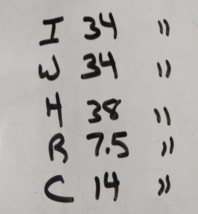 I 34 "
W 34 "
H 38 "
R 7.5 "
C 14 "